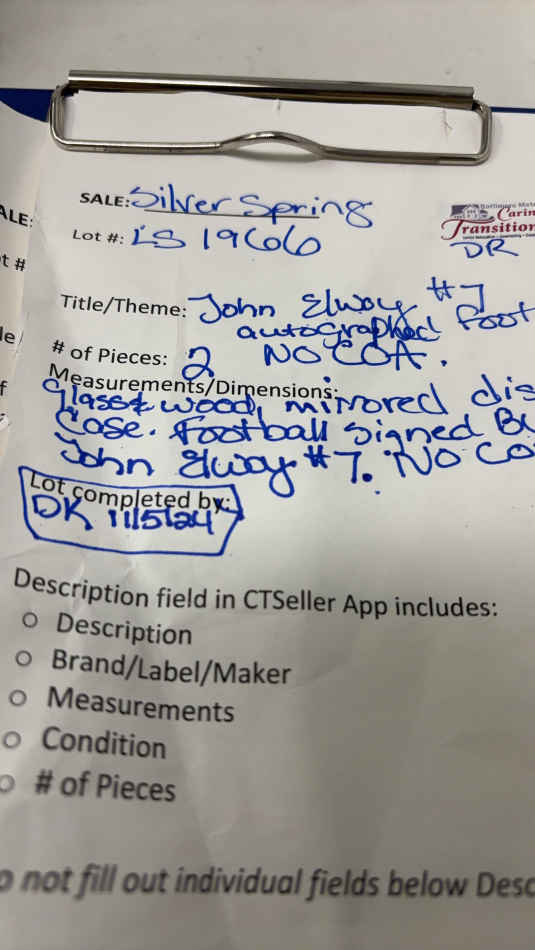 SALE: Silver Spring
Baltimore
Carin
Transition
ALE:
Lot #: LS 19606
DR
t #
Title/Theme: John Elway #7
autographed Foot
# of Pieces: 2 NO COA.
Measurements/Dimensions:
Glass & wood, mirrored dis
Case. Football Signed By
John Elway #7. NO CO
Lot completed by:
DK 11/5/24
Description field in CTSeller App includes:
○ Description
○ Brand/Label/Maker
○ Measurements
○ Condition
○ # of Pieces
o not fill out individual fields below Desc